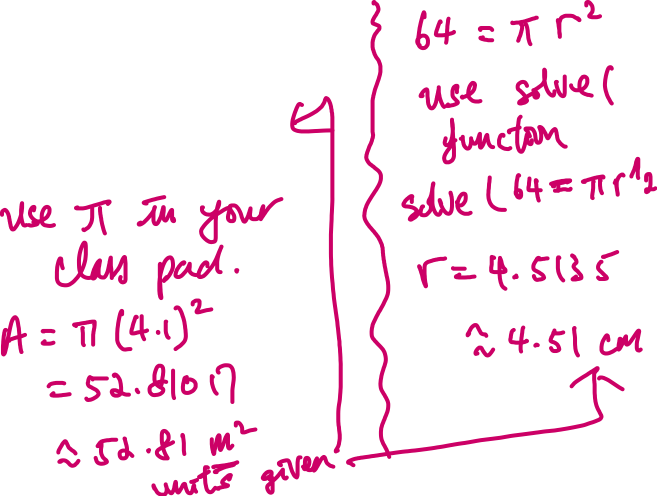 use π in your
class pad.
A = π (4.1)²
= 52.81017
≈ 52.81 m²
units given
64 = π r²
use solve(
function
solve (64 = πr^2
r = 4.5135
≈ 4.51 cm